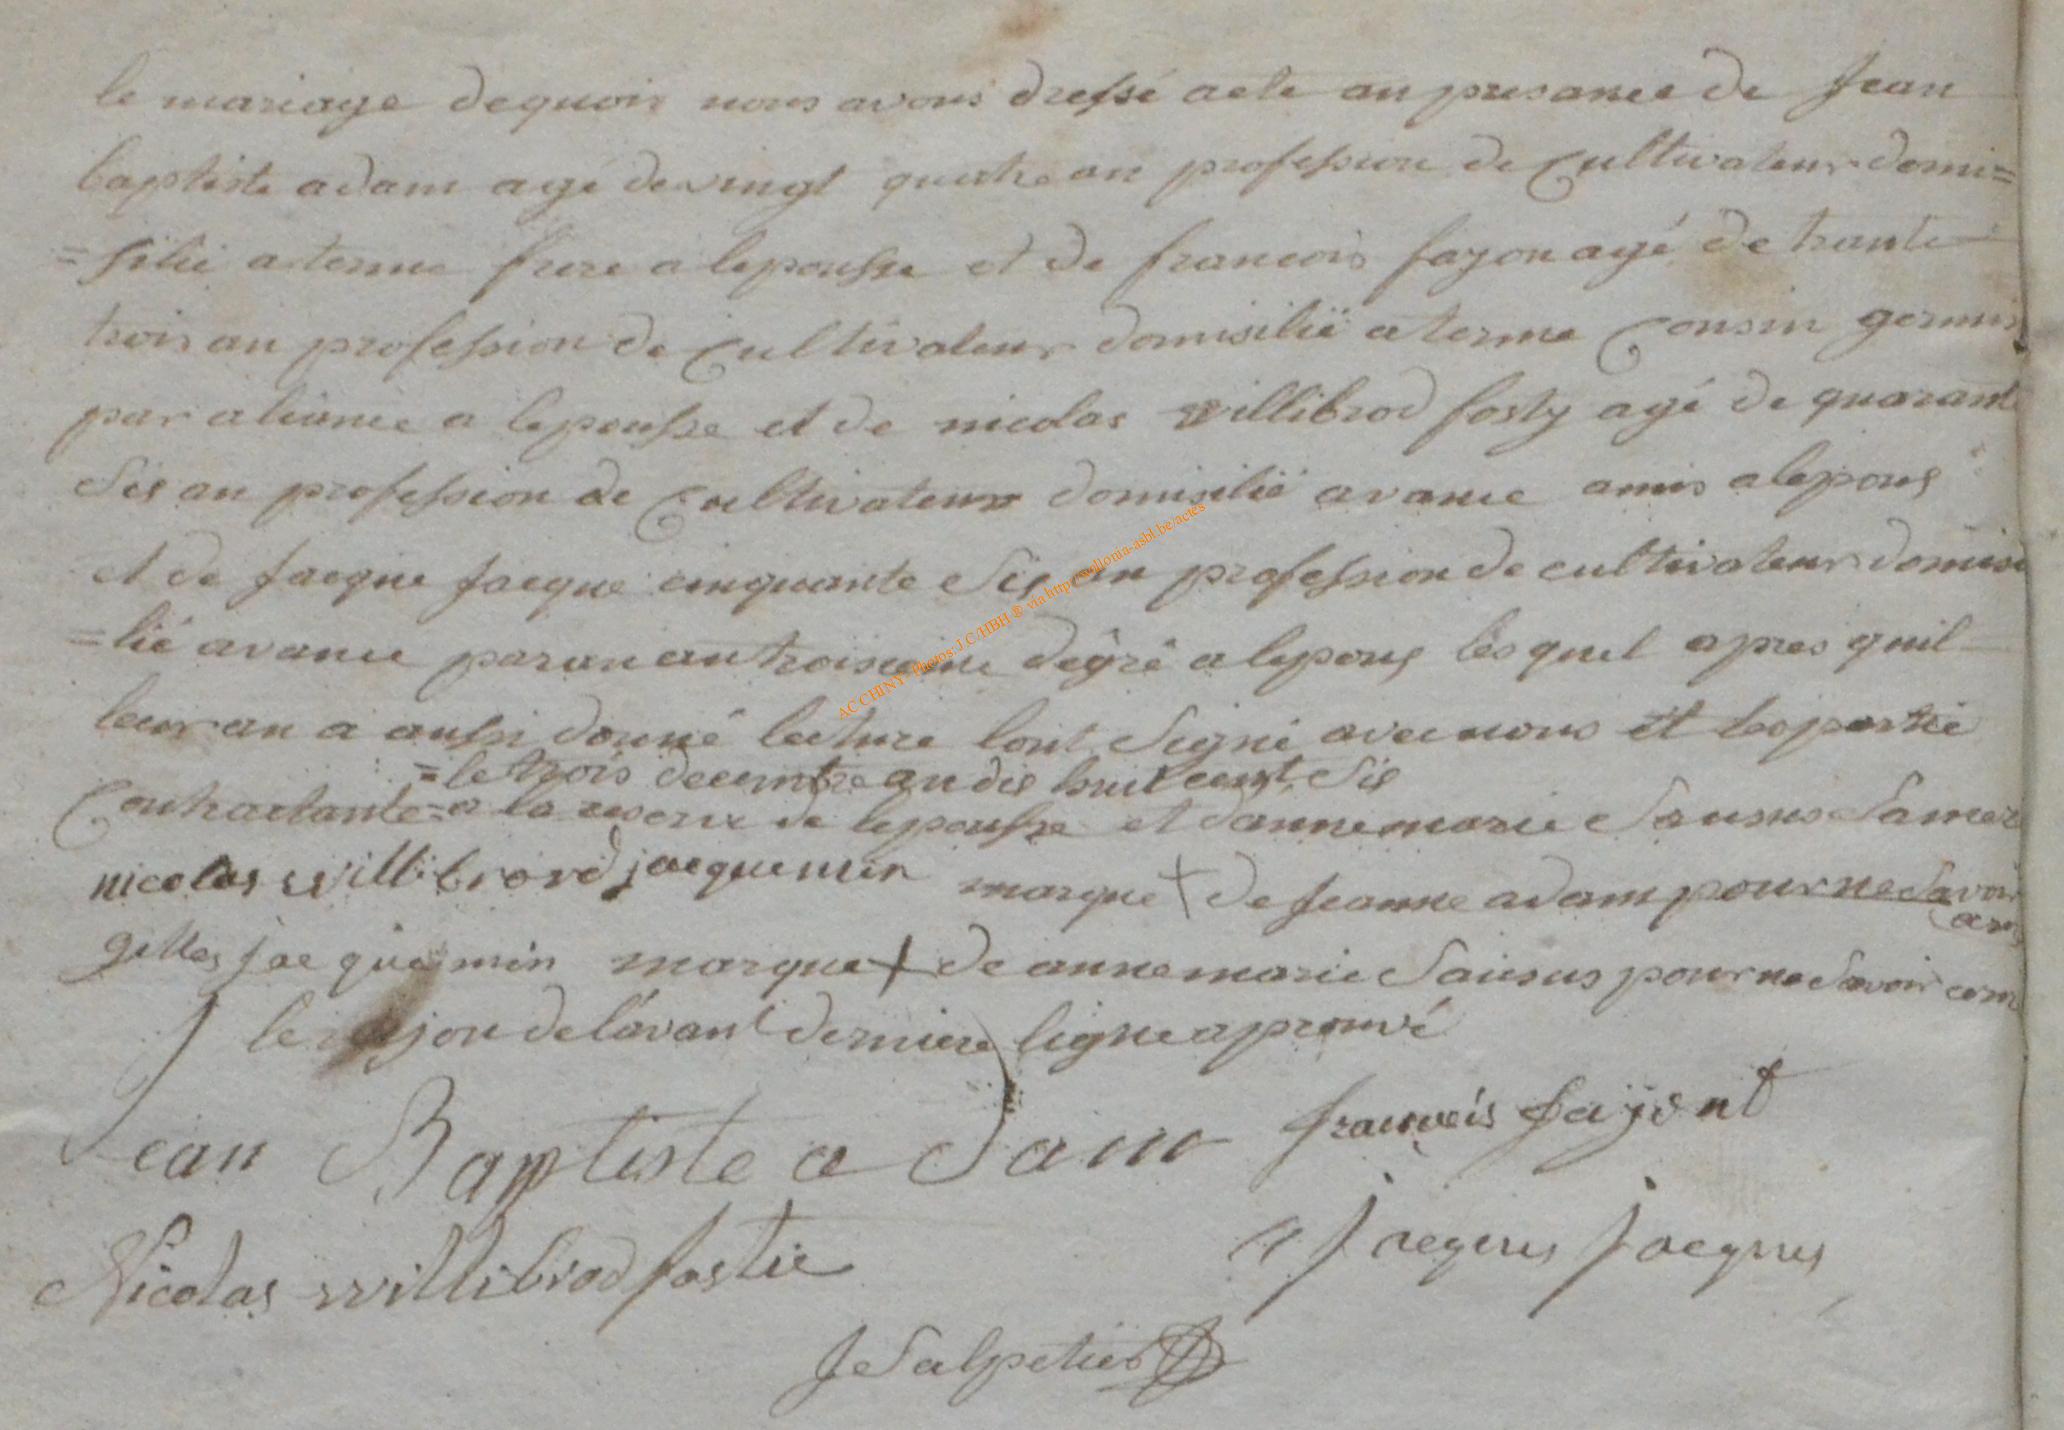 le mariage dequoir nous avons dressé acte an presance de Jean
baptiste adam agé de vingt quatre an profession de Cultivateur domi=
=silié a terme frere a lepousse et de francois fayon agé de trante
trois an profession de Cultivateur domisilié a terme Cousin germin
par aliance a lepousse et de nicolas willibrod fosty agé de quarant
Sis an profession de Cultivateur domisilié avance amis a lepous
et de Jacque Jacque cinquante Sis an profession de cultivateur domisi
=lié avance paran au troisieme dégré a lepous lesquel apres quil
leur an a aussi donné lecture lont Signé avec nous et les partie
=le trois decembre an dis huit cent Sis
Contractante=a la reserve de lepousse et dannemarie Sausus Samer
nicolas willibrord jacquemin marque + de Jeanne adam pour ne Savoir
gilles jacquemin marque + de anne marie Sausus pour ne Savoir
le rajou de lavant derniere ligne aprouvé
Jean Baptiste adam francois fayont
Nicolas willibrod fostie Jacques Jacques
J Salpetier
AC CHINY - Photos: J.C/HBH ® via http://wallonia-asbl.be/actes